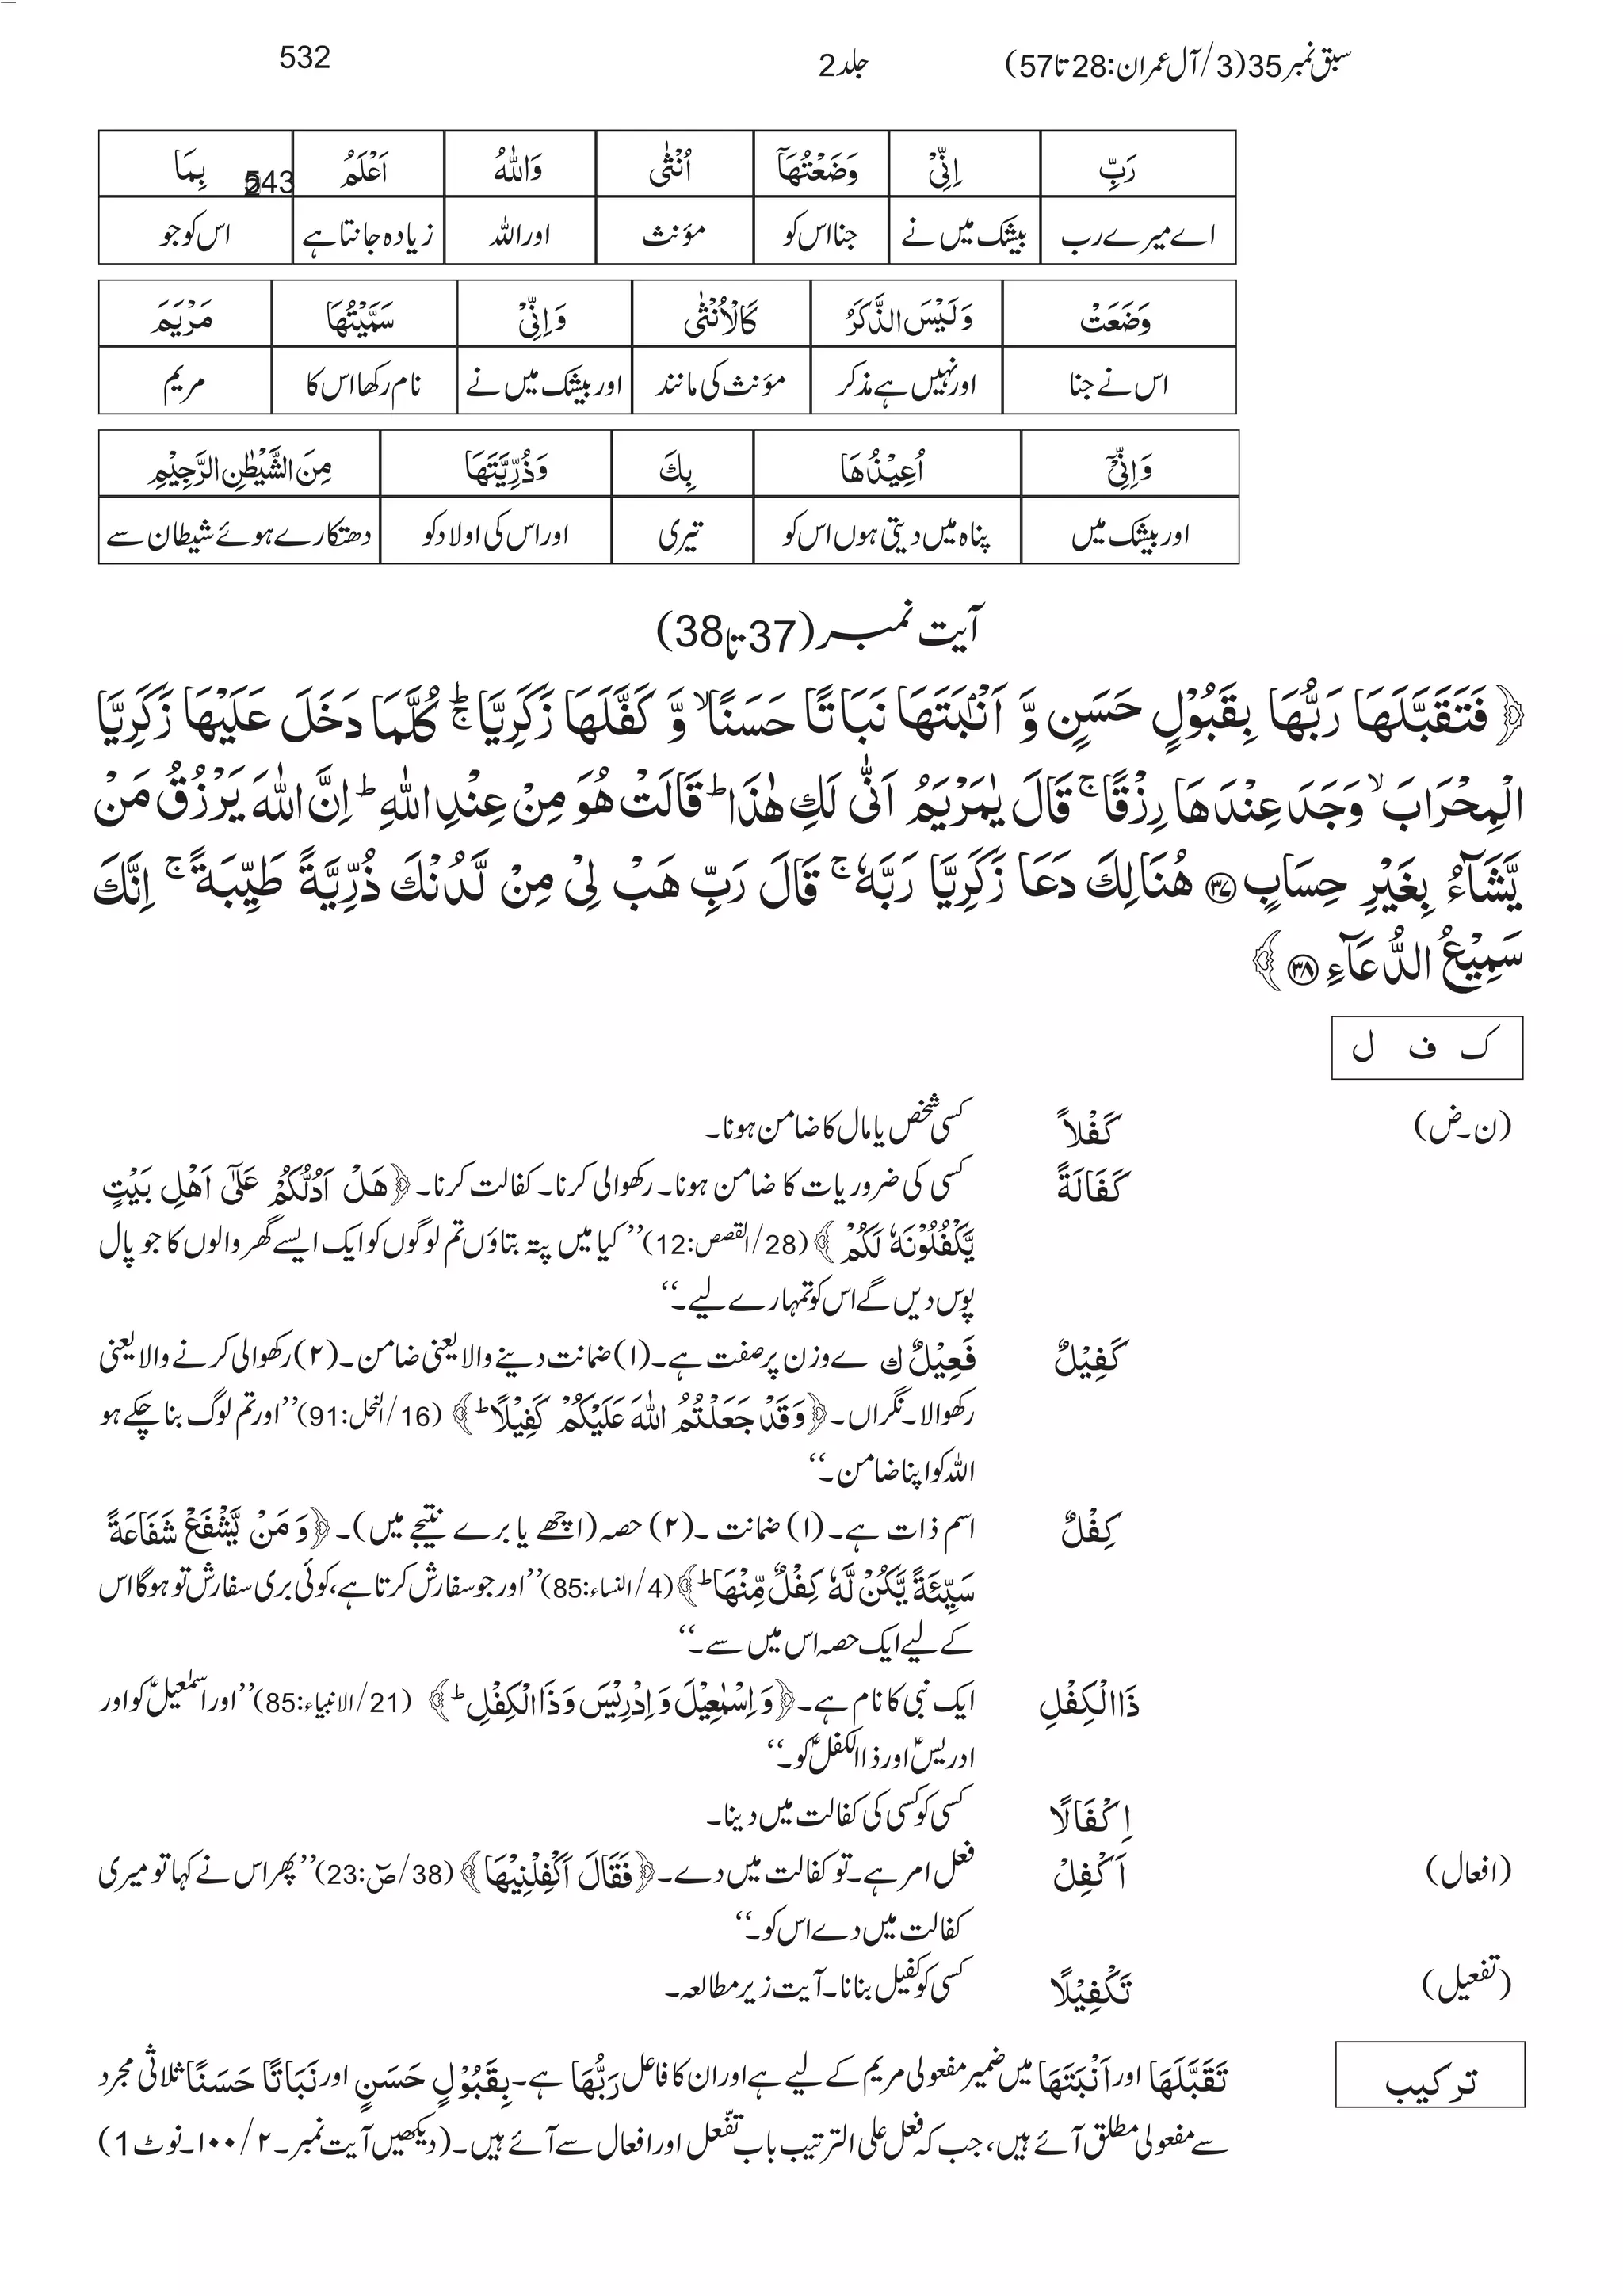 سبق نمبر 35 (3/آل عمران: 28 تا 57) جلد 2 532
رَبِّ اِنِّیْ وَضَعْتُهَاۤ اُنْثٰی وَاللّٰهُ اَعْلَمُ بِمَا
اے میرے رب بیشک میں نے جنا اس کو مؤنث اور اللہ زیادہ جانتا ہے اس کو جو
وَضَعَتْ وَلَیْسَ الذَّكَرُ كَالْاُنْثٰی وَاِنِّیْ سَمَّیْتُهَا مَرْیَمَ
اس نے جنا اور نہیں ہے مذکر مؤنث کی مانند اور بیشک میں نے نام رکھا اس کا مریم
وَاِنِّیْۤ اُعِیْذُهَا بِكَ وَذُرِّیَّتَهَا مِنَ الشَّیْطٰنِ الرَّجِیْمِ
اور بیشک میں پناہ میں دیتی ہوں اس کو تیری اور اس کی اولاد کو دھتکارے ہوئے شیطان سے
آیت نمبر (37 تا 38)
﴿فَتَقَبَّلَهَا رَبُّهَا بِقَبُوْلٍ حَسَنٍ وَّ اَنْۢبَتَهَا نَبَاتًا حَسَنًا ۙ وَّ كَفَّلَهَا زَكَرِیَّا ؕۚ كُلَّمَا دَخَلَ عَلَیْهَا زَكَرِیَّا
الْمِحْرَابَ ۙ وَجَدَ عِنْدَهَا رِزْقًا ۚ قَالَ یٰمَرْیَمُ اَنّٰی لَكِ هٰذَا ؕ قَالَتْ هُوَ مِنْ عِنْدِ اللّٰهِ ؕ اِنَّ اللّٰهَ یَرْزُقُ مَنْ
یَّشَآءُ بِغَیْرِ حِسَابٍ ۝۳۷ هُنَالِكَ دَعَا زَكَرِیَّا رَبَّهٗ ۚ قَالَ رَبِّ هَبْ لِیْ مِنْ لَّدُنْكَ ذُرِّیَّةً طَیِّبَةً ۚ اِنَّكَ
سَمِیْعُ الدُّعَآءِ ۝۳۸﴾
ک ف ل
(ن۔ض) كَفْلًا کسی شخص یا مال کا ضامن ہونا۔
كَفَالَةً کسی کی ضروریات کا ضامن ہونا۔ رکھوالی کرنا۔ کفالت کرنا۔ ﴿هَلْ اَدُلُّكُمْ عَلٰۤی اَهْلِ بَیْتٍ
یَّكْفُلُوْنَهٗ لَكُمْ﴾ (28/القصص:12) ’’کیا میں پتہ بتاؤں تم لوگوں کو ایک ایسے گھر والوں کا جو پال
پوس دیں گے اس کو تمہارے لیے۔‘‘
كَفِیْلٌ فَعِیْلٌ ک ے وزن پر صفت ہے۔ (۱) ضمانت دینے والا یعنی ضامن۔ (۲) رکھوالی کرنے والا یعنی
رکھوالا۔ نگراں۔ ﴿وَقَدْ جَعَلْتُمُ اللّٰهَ عَلَیْكُمْ كَفِیْلًا ؕ﴾ (16/النحل:91) ’’اور تم لوگ بنا چکے ہو
اللہ کو اپنا ضامن۔‘‘
كِفْلٌ اسم ذات ہے۔ (۱) ضمانت۔ (۲) حصہ (اچھے یا برے نتیجے میں)۔ ﴿وَ مَنْ یَّشْفَعْ شَفَاعَةً
سَیِّئَةً یَّكُنْ لَّهٗ كِفْلٌ مِّنْهَا ؕ﴾ (4/النساء:85) ’’اور جو سفارش کرتا ہے، کوئی بری سفارش تو ہوگا اس
کے لیے ایک حصہ اس میں سے۔‘‘
ذَاالْكِفْلِ ایک نبی کا نام ہے۔ ﴿وَ اِسْمٰعِیْلَ وَ اِدْرِیْسَ وَ ذَاالْكِفْلِ ؕ﴾ (21/الانبیاء:85) ’’اور اسمٰعیلؑ کو اور
ادریسؑ اور ذاالکفلؑ کو۔‘‘
اِكْفَالًا کسی کو کسی کی کفالت میں دینا۔
(افعال) اَكْفِلْ فعل امر ہے۔ تو کفالت میں دے۔ ﴿فَقَالَ اَكْفِلْنِیْهَا﴾ (38/صٓ:23) ’’پھر اس نے کہا تو میری
کفالت میں دے اس کو۔‘‘
(تفعیل) تَكْفِیْلًا کسی کو کفیل بنانا۔ آیت زیر مطالعہ۔
ترکیب تَقَبَّلَهَا اور اَنْبَتَهَا میں ضمیر مفعولی مریم کے لیے ہے اور ان کا فاعل رَبُّهَا ہے۔ بِقَبُوْلٍ حَسَنٍ اور نَبَاتًا حَسَنًا ثلاثی مجرد
سے مفعولی مطلق آئے ہیں، جب کہ فعل علی الترتیب باب تفعّل اور افعال سے آئے ہیں۔ (دیکھیں آیت نمبر۔ ۲/۱۰۰۔ نوٹ 1)